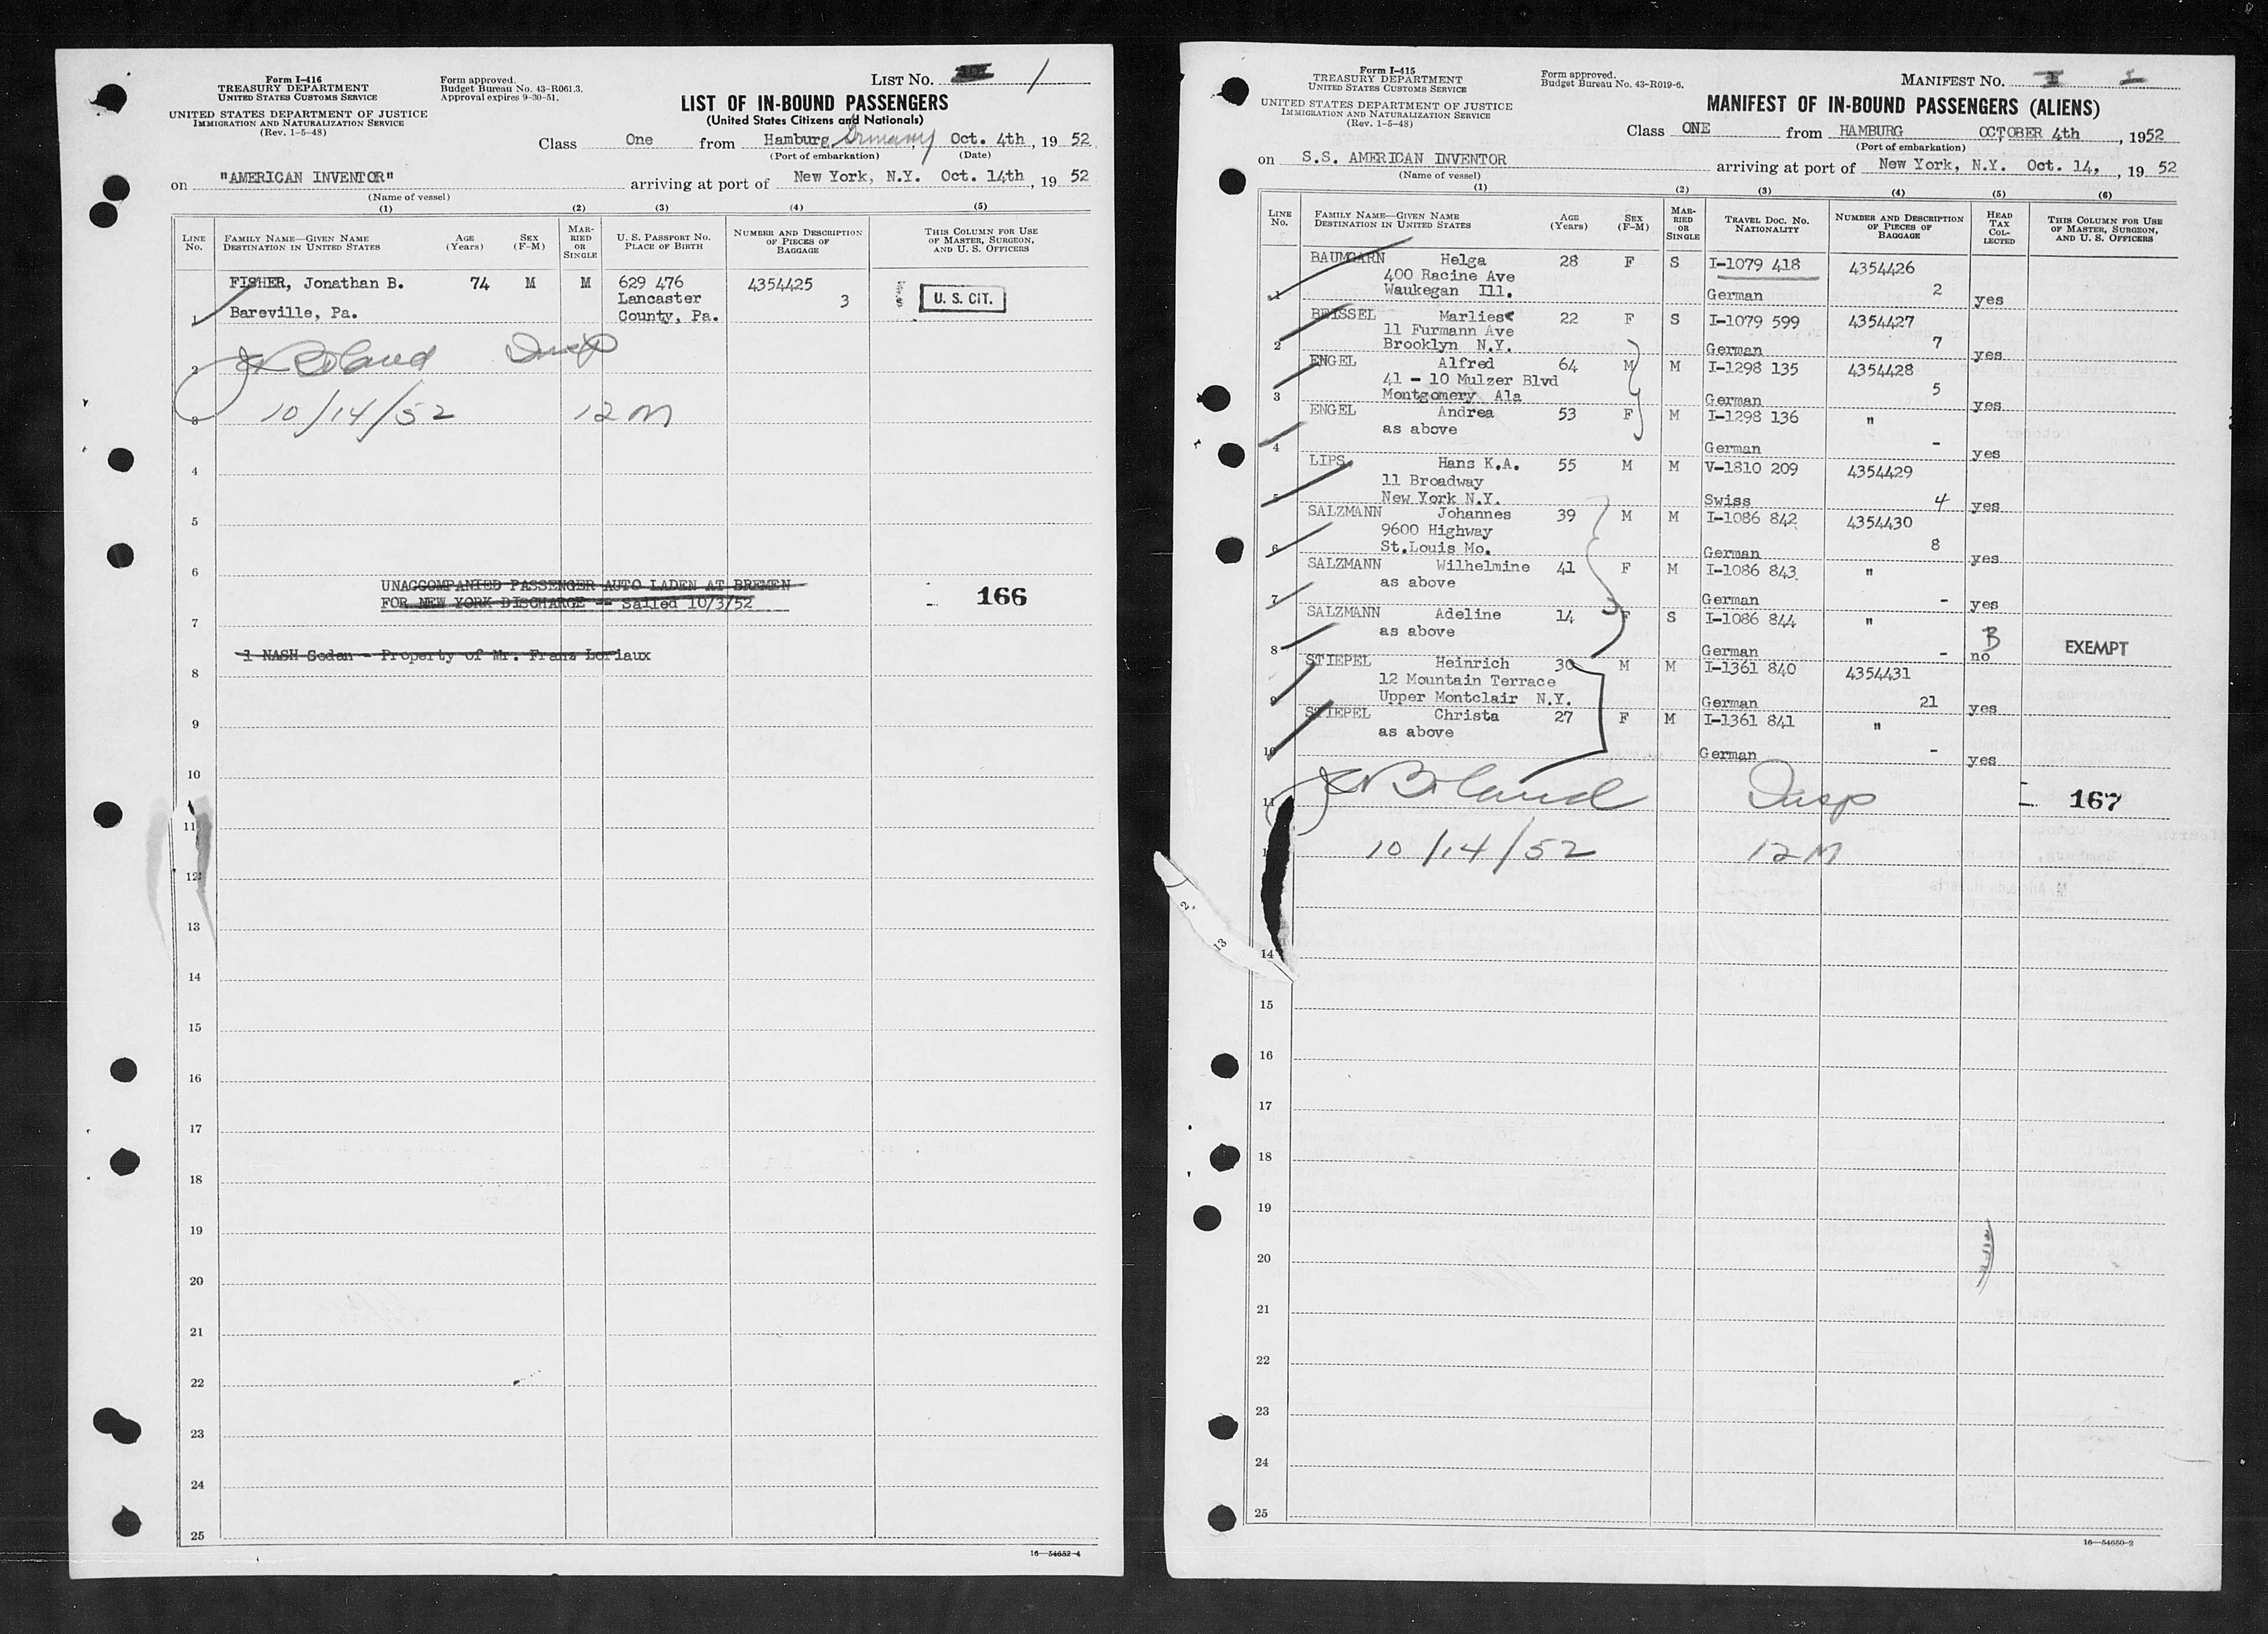 Form I-416
TREASURY DEPARTMENT
UNITED STATES CUSTOMS SERVICE
UNITED STATES DEPARTMENT OF JUSTICE
IMMIGRATION AND NATURALIZATION SERVICE
(Rev. 1-5-48)
Form approved.
Budget Bureau No. 43-R061.3.
Approval expires 9-30-51.
LIST NO. 1
LIST OF IN-BOUND PASSENGERS
(United States Citizens and Nationals)
Class One from Hamburg, Germany, Oct. 4th, 19 52
(Port of embarkation) (Date)
on "AMERICAN INVENTOR" arriving at port of New York, N.Y. Oct. 14th, 19 52
(Name of vessel)
(1) (2) (3) (4) (5)
LINE NO.
FAMILY NAME—GIVEN NAME
DESTINATION IN UNITED STATES
AGE (Years)
SEX (F-M)
MARRIED OR SINGLE
U. S. PASSPORT NO.
PLACE OF BIRTH
NUMBER AND DESCRIPTION OF PIECES OF BAGGAGE
THIS COLUMN FOR USE OF MASTER, SURGEON, AND U. S. OFFICERS
1 FISHER, Jonathan B. 74 M M 629 476 4354425 3 U. S. CIT.
Bareville, Pa. Lancaster County, Pa.
2
Boland Insp
3
10/14/52 12 M
4
5
6
UNACCOMPANIED PASSENGER AUTO LADEN AT BREMEN
FOR NEW YORK DISCHARGE -- Sailed 10/3/52
166
7
1 NASH Sedan - Property of Mr. Franz Loriaux
8
9
10
11
12
13
14
15
16
17
18
19
20
21
22
23
24
25
16—54652-4
Form I-415
TREASURY DEPARTMENT
UNITED STATES CUSTOMS SERVICE
UNITED STATES DEPARTMENT OF JUSTICE
IMMIGRATION AND NATURALIZATION SERVICE
(Rev. 1-5-48)
Form approved.
Budget Bureau No. 43-R019-6.
MANIFEST NO. I
MANIFEST OF IN-BOUND PASSENGERS (ALIENS)
Class ONE from HAMBURG OCTOBER 4th, 1952
(Port of embarkation)
on S.S. AMERICAN INVENTOR arriving at port of New York, N.Y. Oct. 14, 19 52
(Name of vessel)
(1) (2) (3) (4) (5) (6)
LINE NO.
FAMILY NAME—GIVEN NAME
DESTINATION IN UNITED STATES
AGE (Years)
SEX (F-M)
MARRIED OR SINGLE
TRAVEL DOC. NO.
NATIONALITY
NUMBER AND DESCRIPTION OF PIECES OF BAGGAGE
HEAD TAX COLLECTED
THIS COLUMN FOR USE OF MASTER, SURGEON, AND U. S. OFFICERS
1 BAUMGARN Helga 28 F S I-1079 418 4354426
400 Racine Ave
Waukegan Ill. German 2 yes
2 BEISSEL Marlies 22 F S I-1079 599 4354427
11 Furmann Ave
Brooklyn N.Y. German 7 yes
3 ENGEL Alfred 64 M M I-1298 135 4354428
41 - 10 Mulzer Blvd
Montgomery Ala German 5 yes
4 ENGEL Andrea 53 F M I-1298 136 "
as above
German - yes
5 LIPS Hans K.A. 55 M M V-1810 209 4354429
11 Broadway
New York N.Y. Swiss 4 yes
6 SALZMANN Johannes 39 M M I-1086 842 4354430
9600 Highway
St.Louis Mo. German 8 yes
7 SALZMANN Wilhelmine 41 F M I-1086 843 "
as above
German - yes
8 SALZMANN Adeline 14 F S I-1086 844 "
as above B EXEMPT
German - no
9 STIEPEL Heinrich 30 M M I-1361 840 4354431
12 Mountain Terrace
Upper Montclair N.Y. German 21 yes
10 STIEPEL Christa 27 F M I-1361 841 "
as above
German - yes
11
Boland Insp
167
10/14/52 12 M
13
14
15
16
17
18
19
20
21
22
23
24
25
16—54650-2